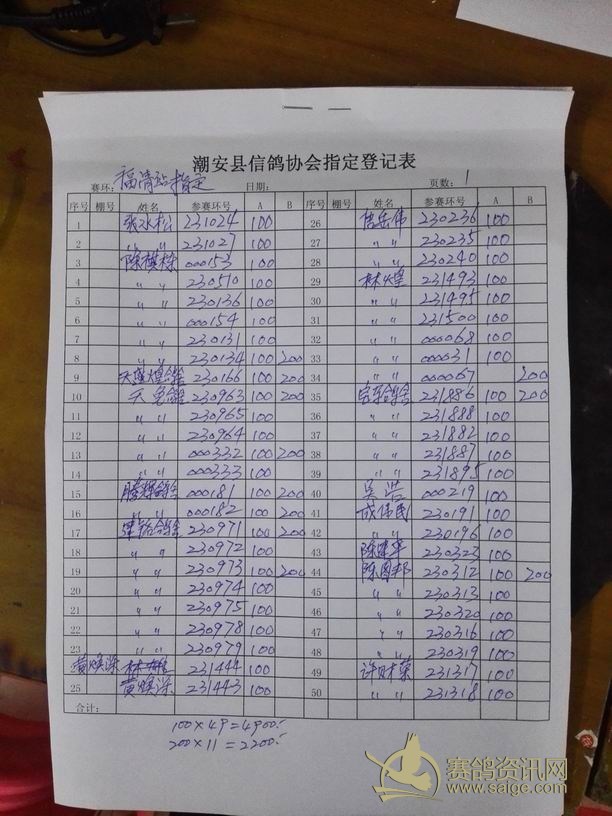 潮安县信鸽协会指定登记表
赛环: 福清站指定 日期: 页数: 1
序号 棚号 姓名 参赛环号 A B 序号 棚号 姓名 参赛环号 A B
1 张水松 231024 100 26 230236 100
2 〃 〃 231027 100 27 〃 〃 230235 100
3 000153 100 28 〃 〃 230240 100
4 〃 〃 230510 100 29 林煌 231493 100
5 〃 〃 230136 100 30 〃 〃 231495 100
6 〃 〃 000154 100 31 〃 〃 231500 100
7 〃 〃 230131 100 32 〃 〃 000068 100
8 〃 〃 230134 100 200 33 〃 〃 000031 100
9 230166 100 200 34 〃 〃 000067 200
10 230963 100 200 35 231886 100 200
11 〃 〃 230965 100 36 〃 〃 231888 100
12 〃 〃 230964 100 37 〃 〃 231882 100
13 〃 〃 000332 100 200 38 〃 〃 231887 100
14 〃 〃 000333 100 39 〃 〃 231895 100
15 腾辉鸽舍 000181 100 200 40 吴浩 000219 100
16 〃 〃 000182 100 200 41 成伟民 230191 100
17 建铭鸽舍 230971 100 200 42 〃 〃 230196 100
18 〃 〃 230972 100 43 陈建华 230323 100
19 〃 〃 230973 100 200 44 陈图邦 230312 100 200
20 〃 〃 230974 100 45 〃 〃 230313 100
21 〃 〃 230975 100 46 〃 〃 230320 100
22 〃 〃 230978 100 47 〃 〃 230316 100
23 〃 〃 230979 100 48 〃 〃 230319 100
231444 100 49 许财荣 231317 100
25 黄焕深 231443 100 50 〃 〃 231318 100
合计:
100×49=4900.
200×11=2200.
赛鸽资讯网
www.saige.com